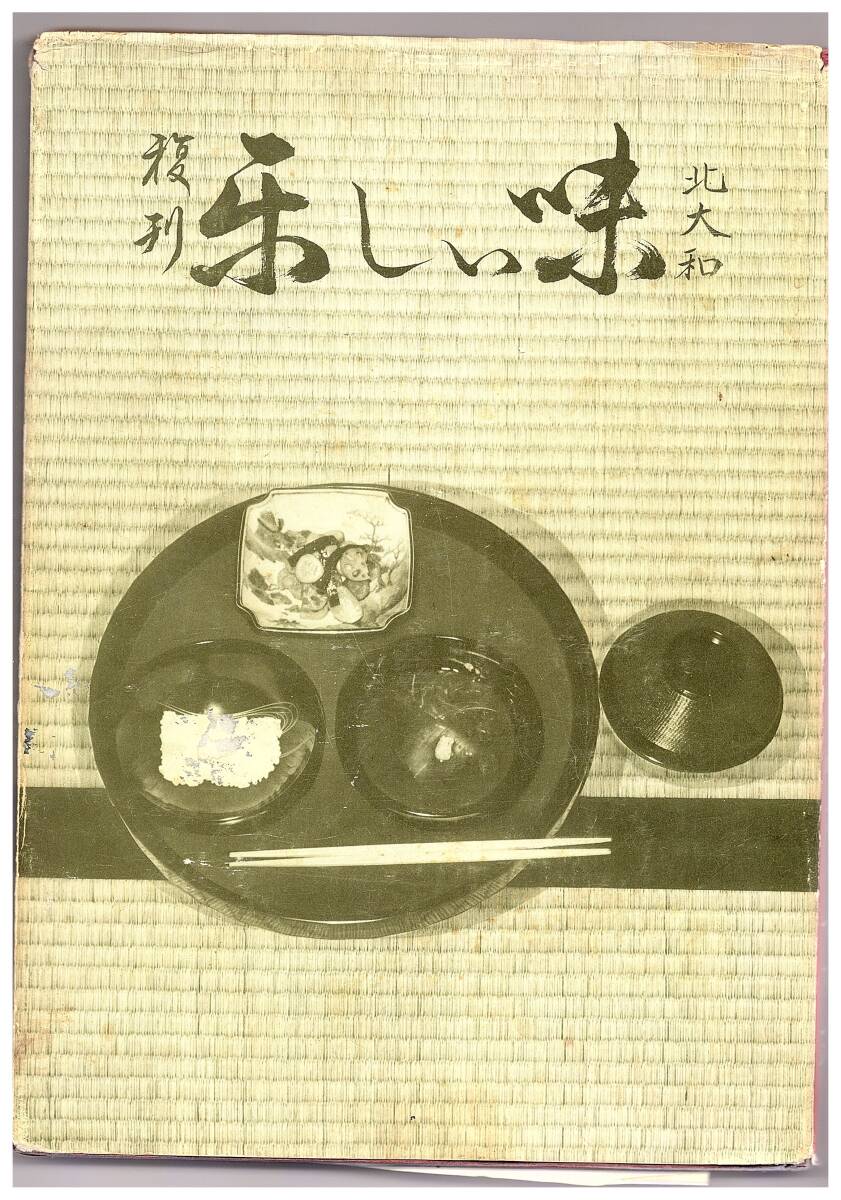 北大和
楽しい味
復刊